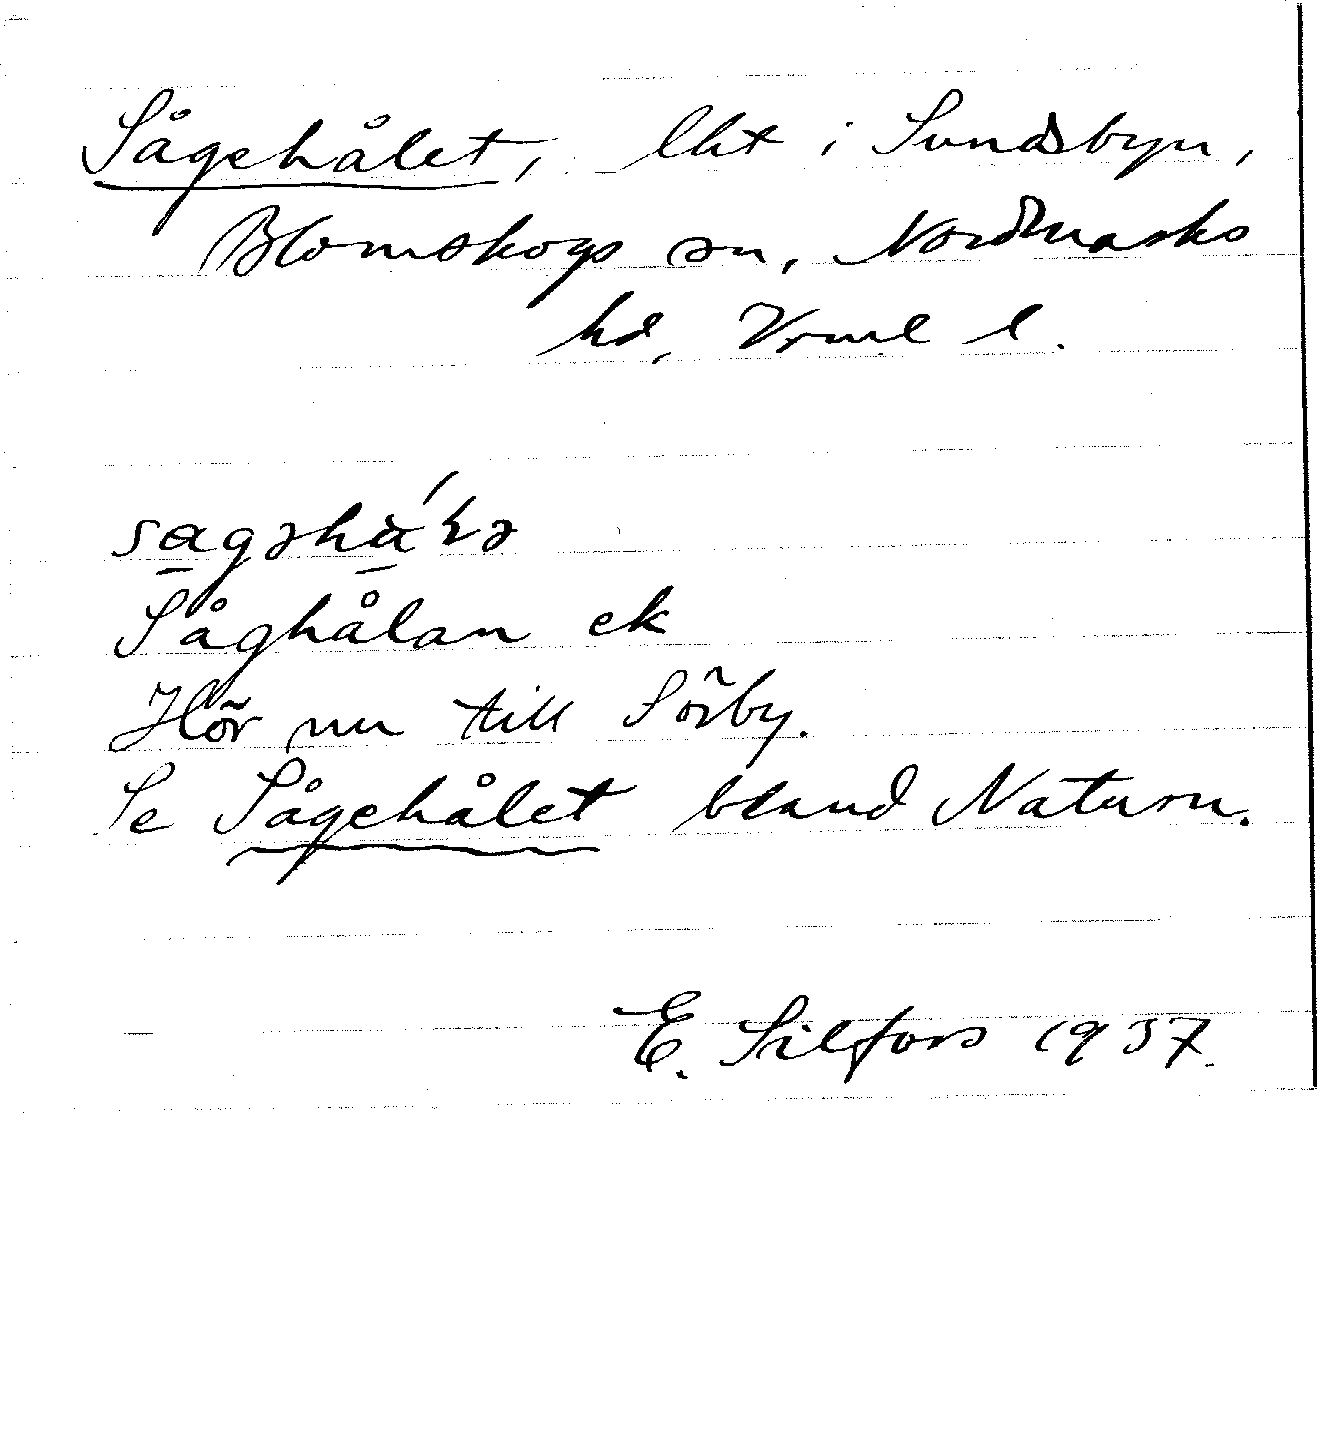 Sågehålet, lht i Sundsbyn,
Blomskogs sn, Nordmarks
hd, Vrml l.
Såghålan ek
Hör nu till Sörby.
Se Sågehålet bland Naturn.
E. Silfors 1937.